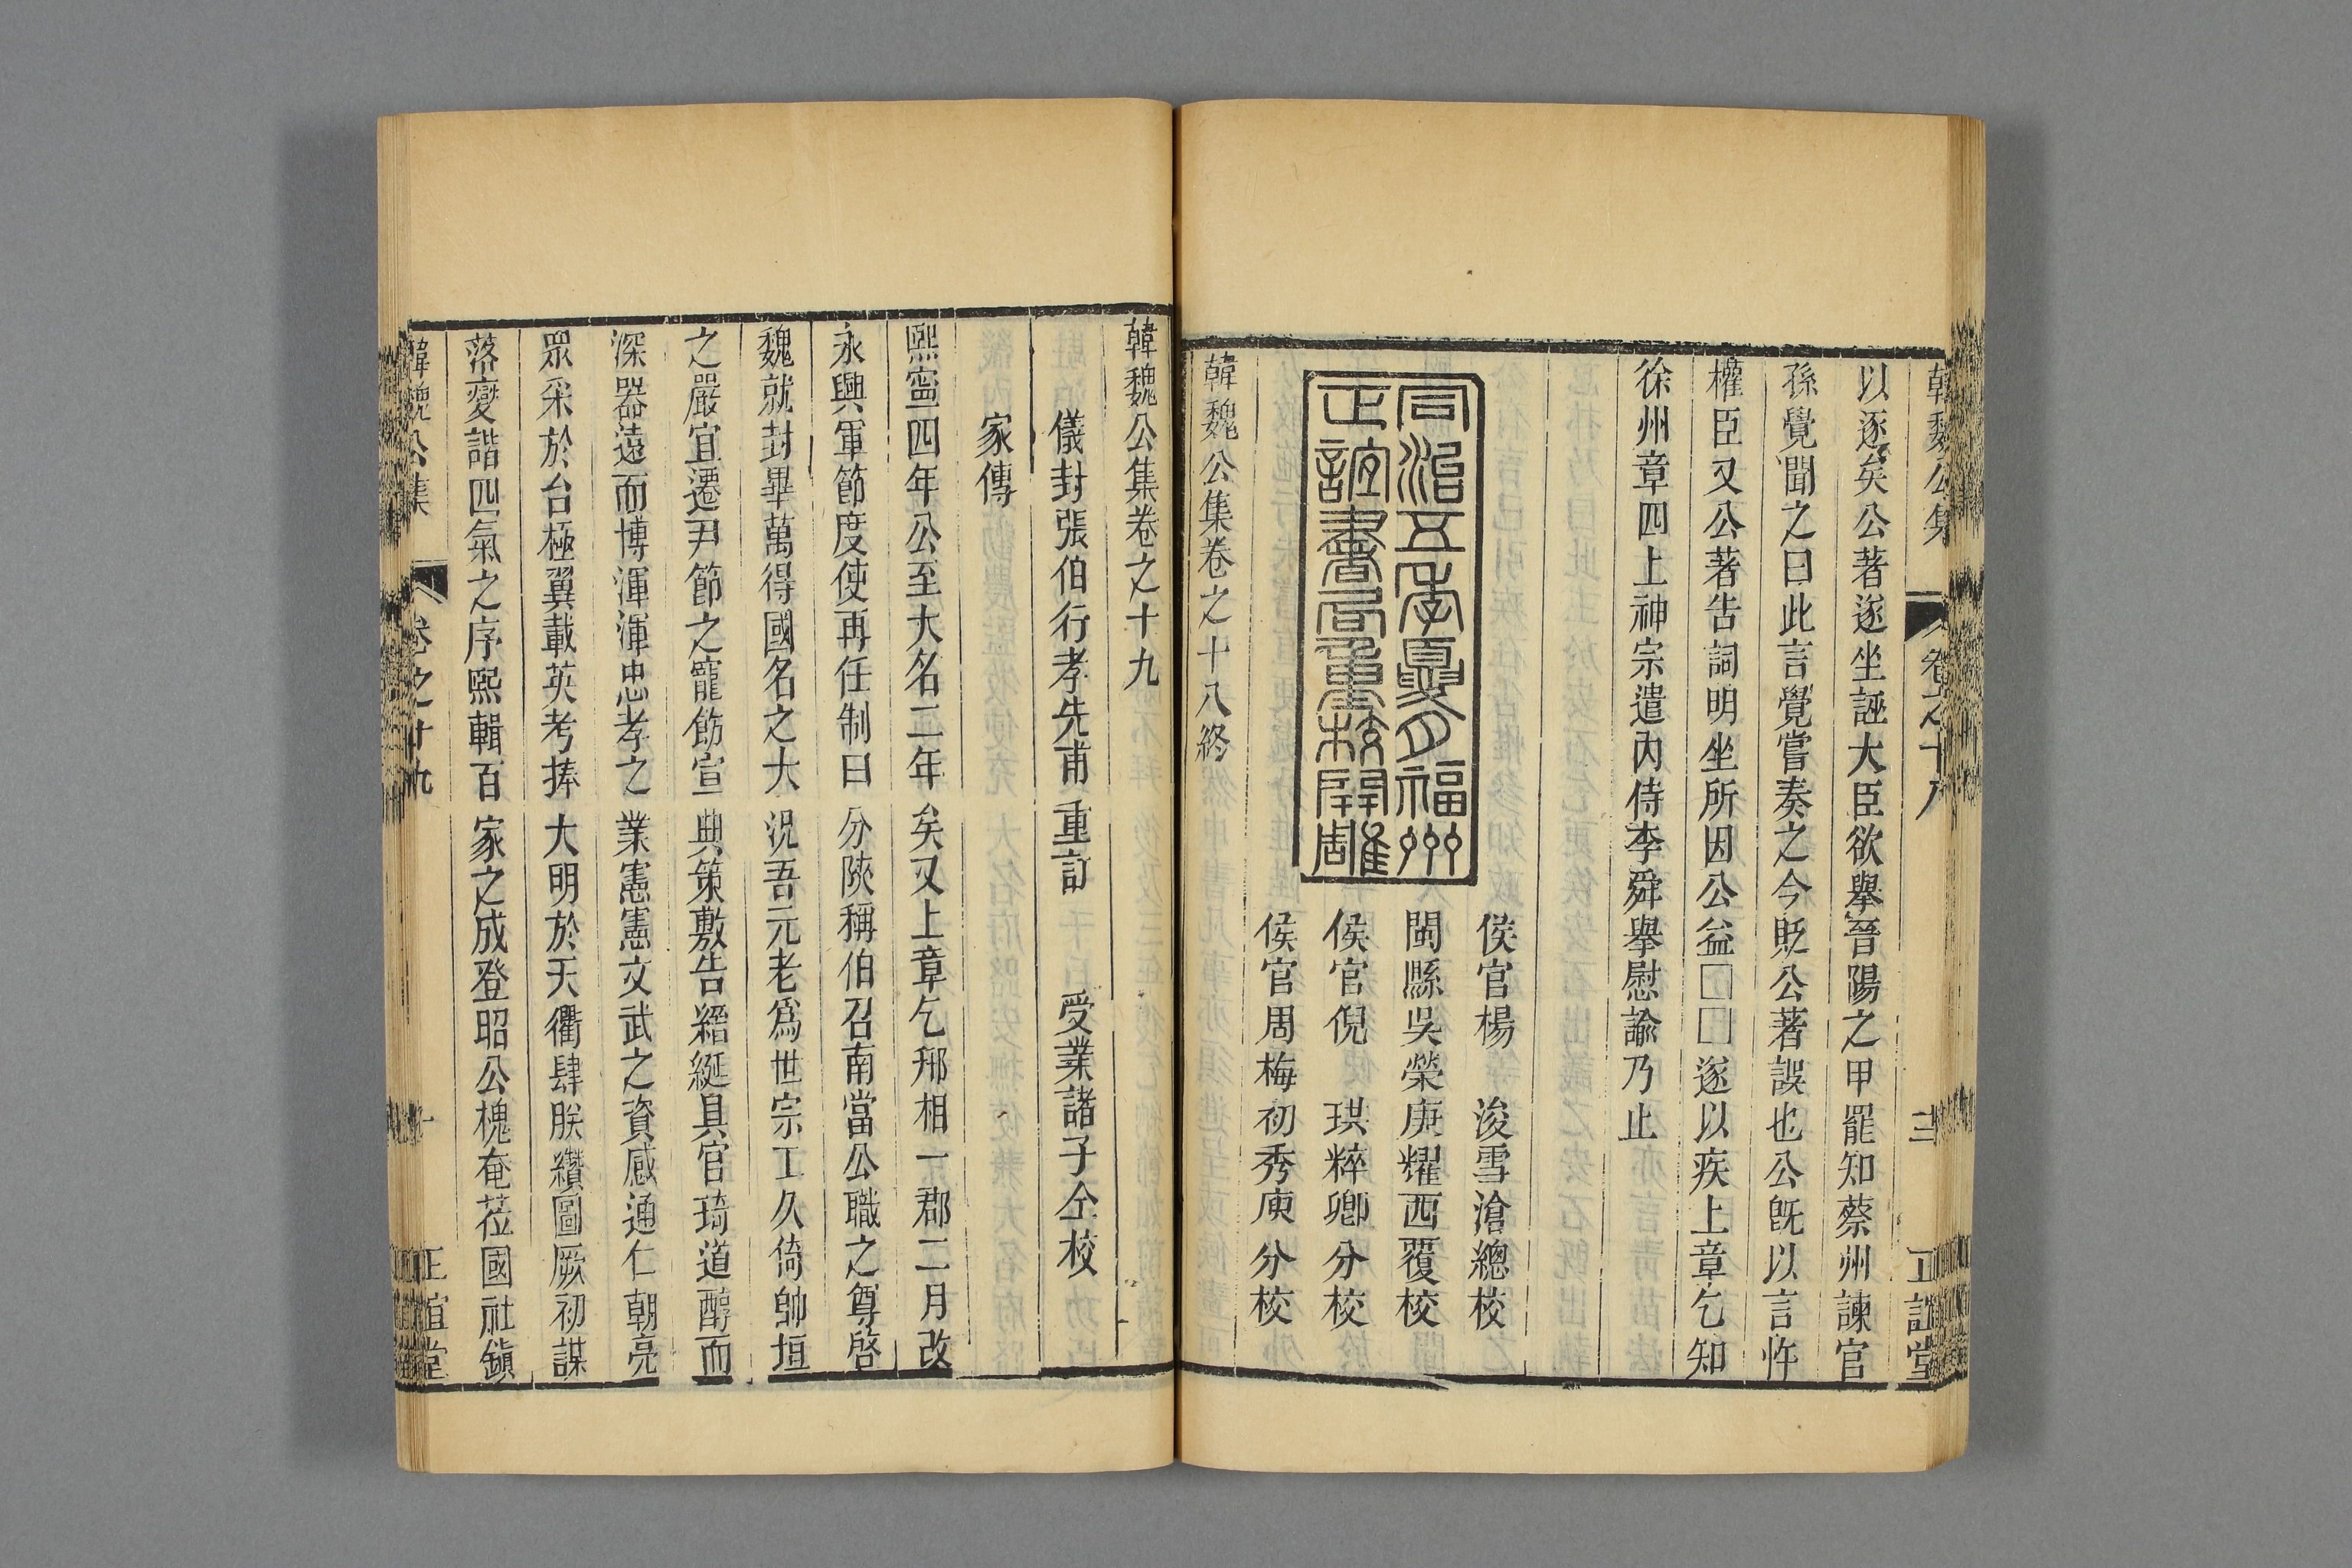 韓魏公集 卷之十八 十二 正誼堂
以逐矣公著遂坐誣大臣欲舉晉陽之甲罷知蔡州諫官
孫覺聞之曰此言覺嘗奏之今貶公著誤也公旣以言忤
權臣又公著告詞明坐所因公益□□遂以疾上章乞知
徐州章四上神宗遣內侍李舜舉慰諭乃止
侯官楊 浚雪滄總校
閩縣吳榮庚耀西覆校
侯官倪 珙粹卿分校
侯官周梅初秀庚分校
同治五年夏月福州
正誼書局重校開雕
韓魏公集卷之十八終
韓魏公集卷之十九
儀封張伯行孝先甫重訂 受業諸子仝校
家傳
熙寧四年公至大名二年矣又上章乞邢相一郡二月改
永興軍節度使再任制曰分陝稱伯召南當公職之尊啓
魏就封畢萬得國名之大況吾元老爲世宗工久倚帥垣
之嚴宜遷尹節之寵飭宣典策敷告縉綖具官琦道醇而
深器遠而博渾渾忠孝之業憲憲文武之資感通仁朝亮
眾采於台極翼載英考捧大明於天衢肆朕纘圖厥初謀
落變諧四氣之序熙輯百家之成登昭公槐奄莅國社鎭
韓魏公集 卷之十九 一 正誼堂